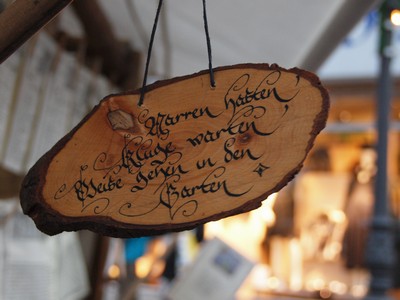 Narren hasten,
Kluge warten,
Weise gehen in den
Garten